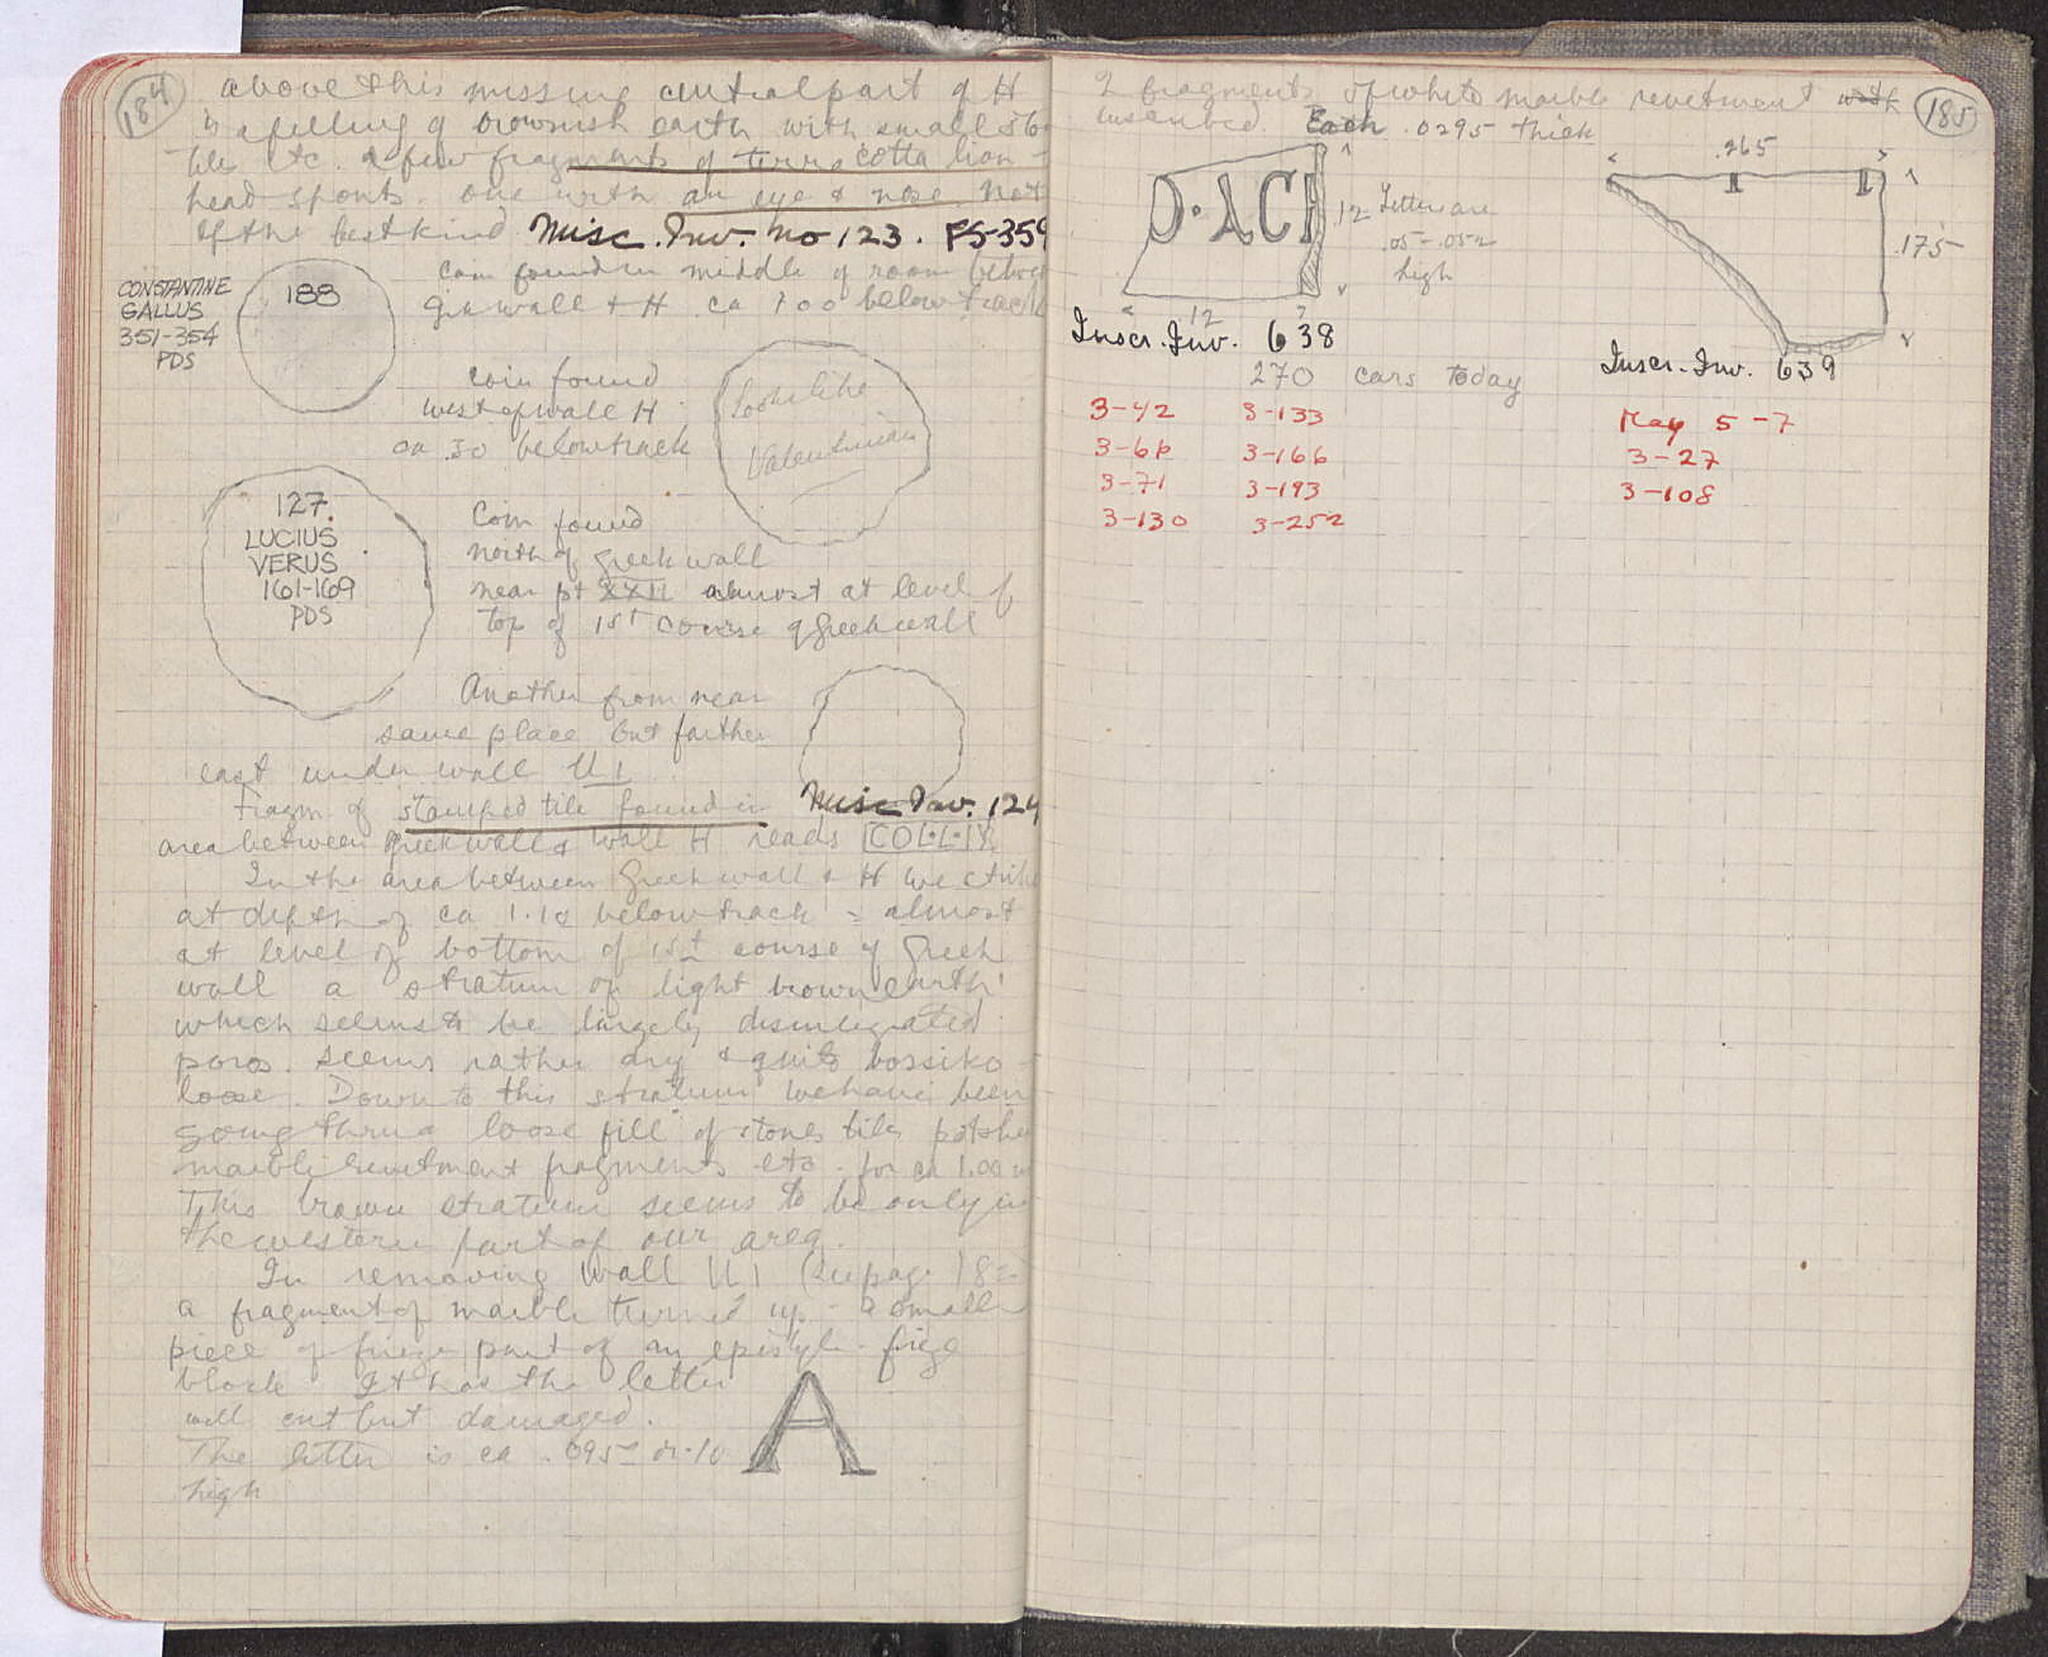 184
above this missing central part of H
is a filling of brownish earth with small sto
tile etc. a few fragments of terra cotta lion-
head spouts. one with an eye & nose. Not
of the best kind Misc. Inv. No 123. FS-359
CONSTANTINE
GALLUS
351-354
PDS
188
Coin found in middle of room betwe
Grk wall + H ca 1.00 below track
Coin found
west of wall H
ca .30 below track
Looks like
Valentinian
127.
LUCIUS
VERUS
161-169
PDS
Coin found
north of Greek wall
near pt XXII almost at level of
top of 1st course of Greek wall
Another from near
same place but farther
east under wall U1
Fragm of stamped tile found in Misc Inv. 124
area between Greek wall & wall H reads COL·L·I
In the area between Greek wall & H we strike
at depth of ca 1.10 below track = almost
at level of bottom of 1st course of Greek
wall a stratum of light brown earth
which seems to be largely disintegrated
poros. seems rather dry & quite bossiko-
loose. Down to this stratum we have been
going thru a loose fill of stones tiles potshe
marble revetment fragments etc. for ca 1.00 m
This brown stratum seems to be only in
the western part of our area.
In removing Wall U1 (see page 18
a fragment of marble turned up - a small
piece of frieze part of an epistyle-frieze
block. It has the letter
well cut but damaged. A
The letter is ca .095 or .10
high
185
2 fragments of white marble revetment with
inscribed. Each .0295 thick
O·ACI
.12
Letters are
.05-.052
high
.12
.265
.175
Inscr. Inv. 638
Inscr. Inv. 639
270 cars today
3-42 3-133
3-66 3-166
3-71 3-193
3-130 3-252
May 5-7
3-27
3-108